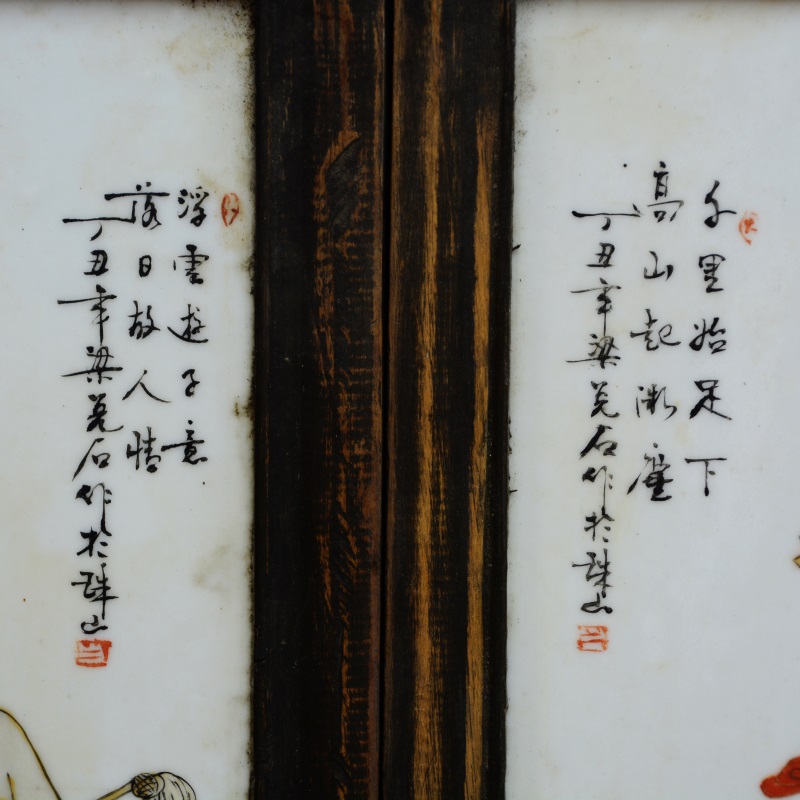 千里始足下
高山起微塵
丁丑年梁兌石作於珠山
浮雲遊子意
落日故人情
丁丑年梁兌石作於珠山